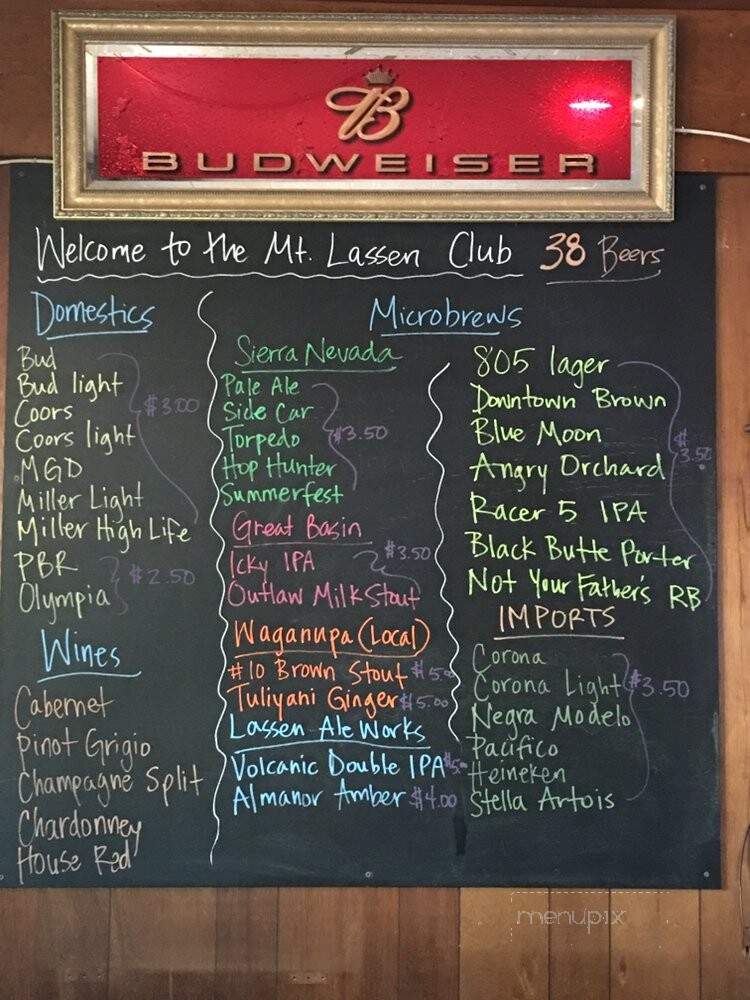 B
BUDWEISER
Welcome to the Mt. Lassen Club 38 Beers
Domestics
Bud
Bud light
Coors
Coors light
$3.00
MGD
Miller Light
Miller High Life
PBR
Olympia
$2.50
Wines
Cabernet
Pinot Grigio
Champagne Split
Chardonney
House Red
Microbrews
Sierra Nevada
Pale Ale
Side Car
Torpedo
$3.50
Hop Hunter
Summerfest
Great Basin
Icky IPA
$3.50
Outlaw Milk Stout
Waganupa (Local)
#10 Brown Stout $5.00
Tuliyani Ginger $5.00
Lassen Ale Works
Volcanic Double IPA $5.00
Almanor Amber $4.00
805 lager
Downtown Brown
Blue Moon
$3.50
Angry Orchard
Racer 5 IPA
Black Butte Porter
Not Your Father's RB
IMPORTS
Corona
Corona Light
$3.50
Negra Modelo
Pacifico
Heineken
Stella Artois
menupix